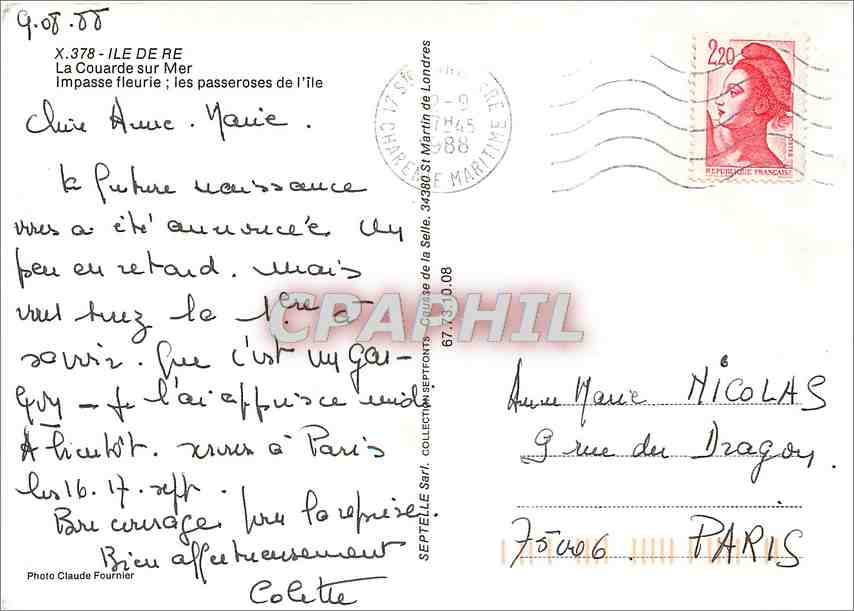 9.08.88
X.378 - ILE DE RE
La Couarde sur Mer
Impasse fleurie ; les passeroses de l'île
Chère Anne-Marie.
la future naissance
vous a été annoncée un
peu en retard. mais
vous serez la 1ère à
savoir. Que c'est un gar-
çon - je l'ai appris ce midi.
A bientôt. serons à Paris
les 16.17. sept.
Bon courage pour la reprise.
Bien affectueusement
Colette
Photo Claude Fournier
SEPTELLE Sarl. COLLECTION SEPTFONTS Causse de la Selle. 34380 St Martin de Londres
67.73.10.08
CPAPHIL
17 St
7H45
1988
CHARENTE MARITIME
2,20
POSTES
REPUBLIQUE FRANÇAISE
Anne Marie NICOLAS
9 rue du Dragon.
75006. PARIS